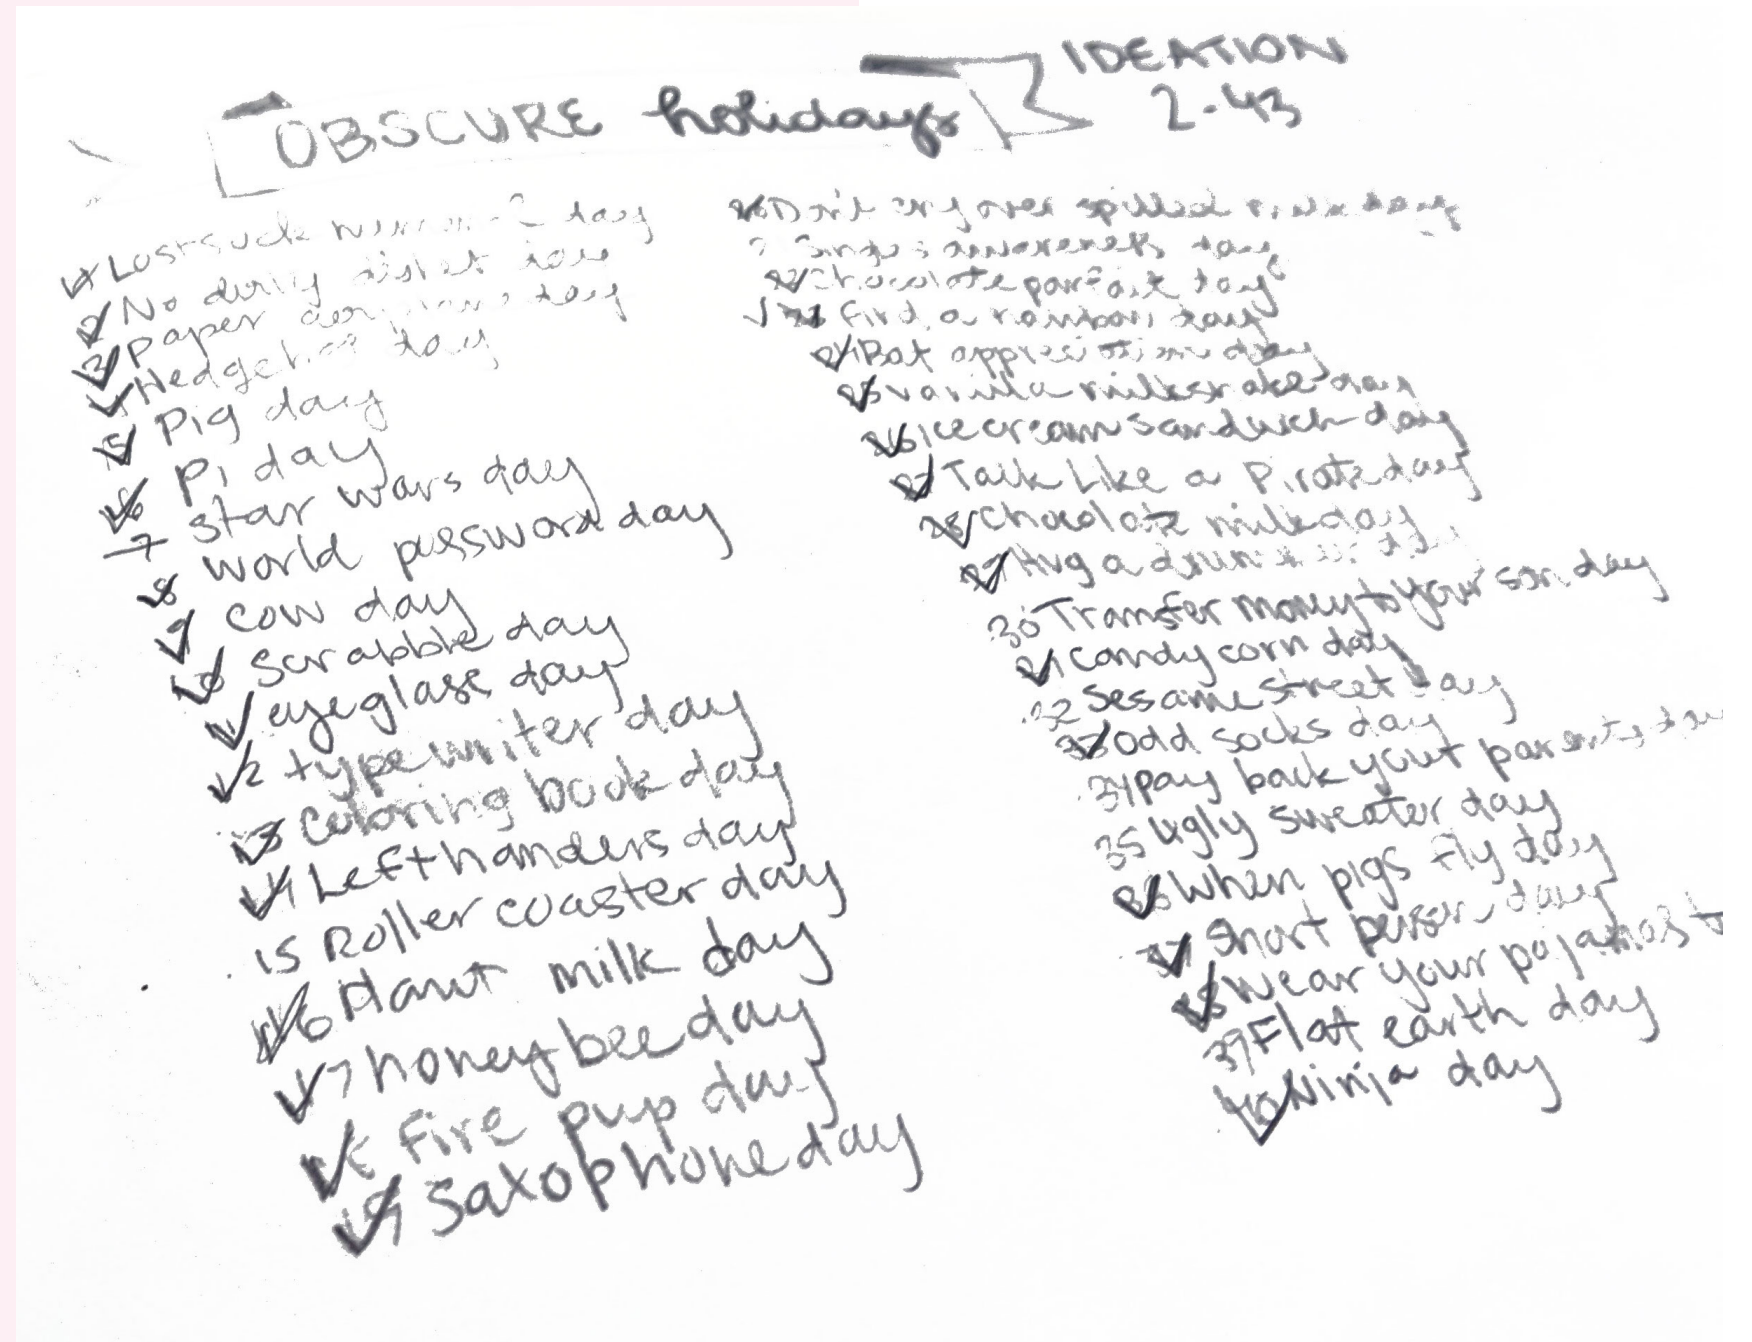 IDEATION
2-43
OBSCURE holidays
1 Lost sock day
2 No dirty day
3 Paper aeroplane day
4 Hedgehog day
5 Pig day
6 Pi day
7 Star wars day
8 World password day
9 Cow day
10 Scrabble day
11 eyeglass day
12 typewriter day
13 Coloring book day
14 Left handers day
15 Roller coaster day
16 Plant milk day
17 honey bee day
18 Fire pup day
19 Saxophone day
20 Don't cry over spilled milk day
awareness day
22 Chocolate parfait day
Find a rainbow day
24 Bat appreciation day
25 vanilla milkshake day
26 ice cream sandwich day
27 Talk Like a Pirate day
28 Chocolate milk day
29 Hug a
30 Transfer money to your son day
31 Candy corn day
32 Sesame street day
33 Odd socks day
34 Pay back your parents day
35 Ugly sweater day
36 When pigs fly day
37 Short person day
38 Wear your pajamas
39 Flat earth day
40 Ninja day